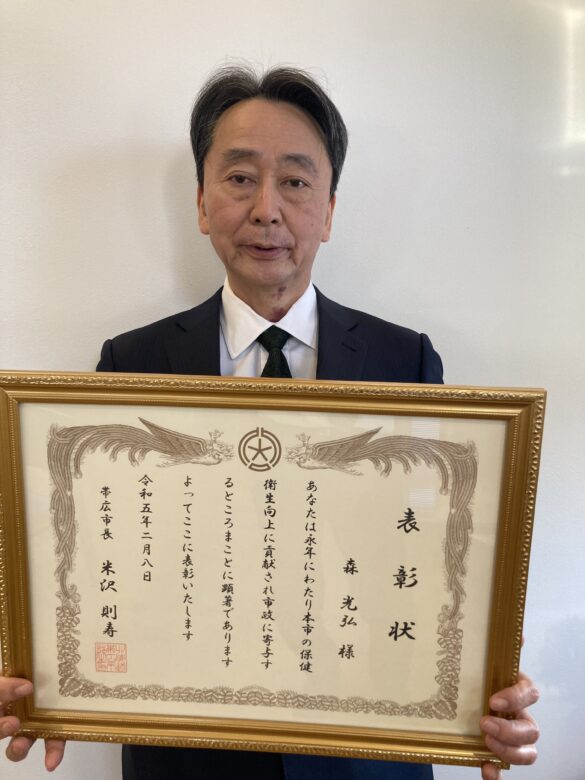 表彰状
森 光弘 様
あなたは永年にわたり本市の保健
衛生向上に貢献され市政に寄与す
るところまことに顕著であります
よってここに表彰いたします
令和五年二月八日
帯広市長 米沢 則寿